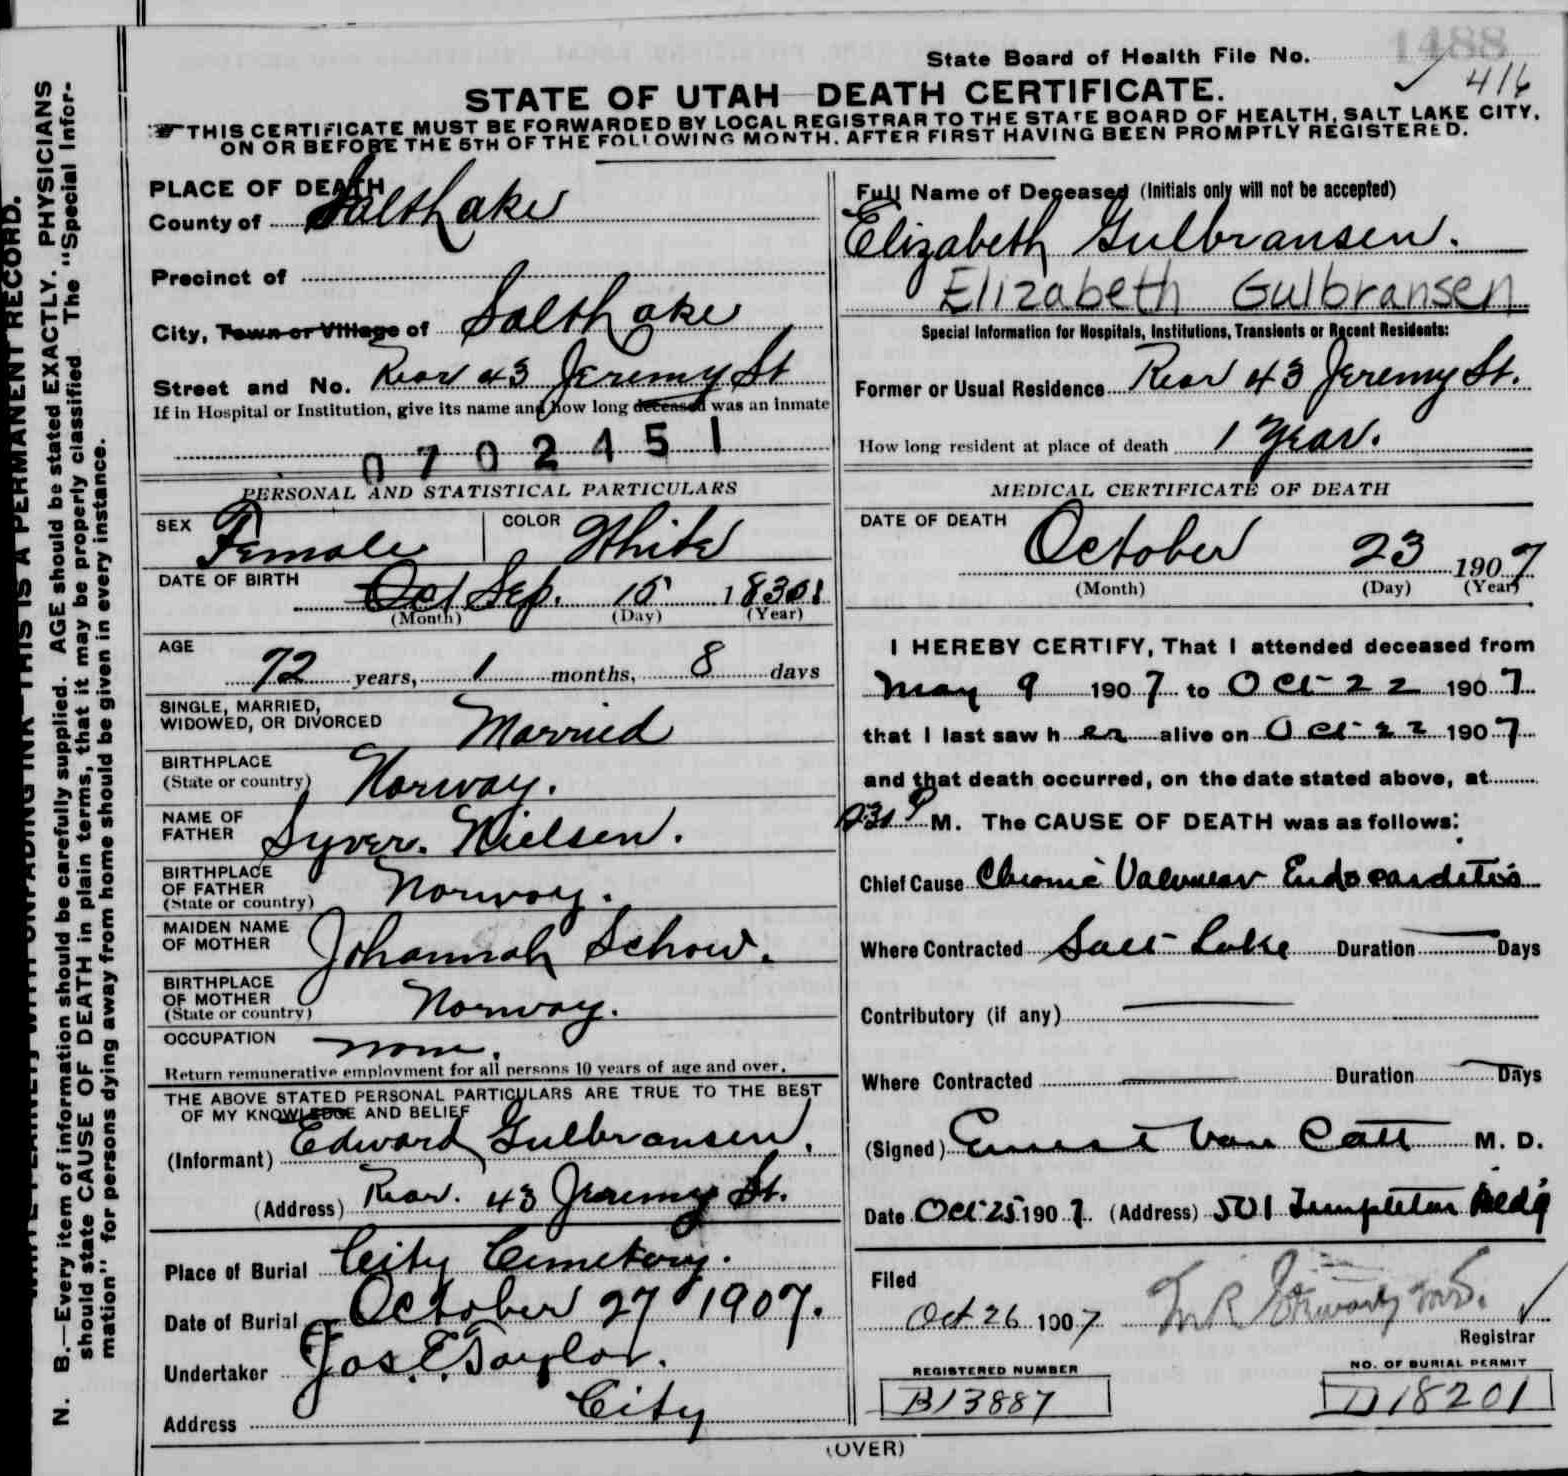 1488
State Board of Health File No. 416
STATE OF UTAH—DEATH CERTIFICATE.
THIS CERTIFICATE MUST BE FORWARDED BY LOCAL REGISTRAR TO THE STATE BOARD OF HEALTH, SALT LAKE CITY,
ON OR BEFORE THE 5TH OF THE FOLLOWING MONTH, AFTER FIRST HAVING BEEN PROMPTLY REGISTERED.
PLACE OF DEATH
County of Salt Lake
Precinct of
City, Town or Village of Salt Lake
Street and No. Rear 43 Jeremy St
If in Hospital or Institution, give its name and how long deceased was an inmate
0702451
Full Name of Deceased (Initials only will not be accepted)
Elizabeth Gulbransen.
Elizabeth Gulbransen
Special Information for Hospitals, Institutions, Transients or Recent Residents:
Former or Usual Residence Rear 43 Jeremy St.
How long resident at place of death 1 Year.
PERSONAL AND STATISTICAL PARTICULARS
SEX Female COLOR White
DATE OF BIRTH Oct Sep. 15
(Month) (Day) (Year)
AGE
72 years, 1 months, 8 days
SINGLE, MARRIED,
WIDOWED, OR DIVORCED Married
BIRTHPLACE
(State or country) Norway.
NAME OF
FATHER Syver. Nielsen.
BIRTHPLACE
OF FATHER
(State or country) Norway.
MAIDEN NAME
OF MOTHER Johannah Schow.
BIRTHPLACE
OF MOTHER
(State or country) Norway.
OCCUPATION none.
Return remunerative employment for all persons 10 years of age and over.
THE ABOVE STATED PERSONAL PARTICULARS ARE TRUE TO THE BEST
OF MY KNOWLEDGE AND BELIEF
(Informant) Edward Gulbransen.
(Address) Rear. 43 Jeremy St.
Place of Burial City Cemetery.
Date of Burial October 27 1907.
Undertaker Jos. E. Taylor.
Address City
MEDICAL CERTIFICATE OF DEATH
DATE OF DEATH October 23 1907
(Month) (Day) (Year)
I HEREBY CERTIFY, That I attended deceased from
May 9 1907 to Oct 22 1907
that I last saw her alive on Oct 22 1907
and that death occurred, on the date stated above, at
P M. The CAUSE OF DEATH was as follows:
Chief Cause Chronic Valvular Endocarditis
Where Contracted Salt Lake Duration — Days
Contributory (if any) —
Where Contracted — Duration — Days
(Signed) Ernest Van Cott M. D.
Date Oct 25 1907 (Address) 501 Templeton Bldg
Filed
Oct 26 1907
Registrar
REGISTERED NUMBER
B13887
NO. OF BURIAL PERMIT
D18201
(OVER)
WRITE PLAINLY WITH UNFADING INK—THIS IS A PERMANENT RECORD.
N. B.—Every item of information should be carefully supplied. AGE should be stated EXACTLY. PHYSICIANS
should state CAUSE OF DEATH in plain terms, that it may be properly classified The "Special Infor-
mation" for persons dying away from home should be given in every instance.